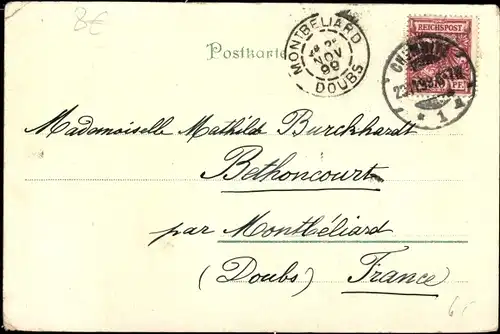 8€
Postkarte
MONTBÉLIARD
NOV
99
DOUBS
REICHSPOST
CHEMNITZ
* 1
PF
Mademoiselle Mathilde Burckhardt
Bethoncourt
par Montbéliard
(Doubs) France